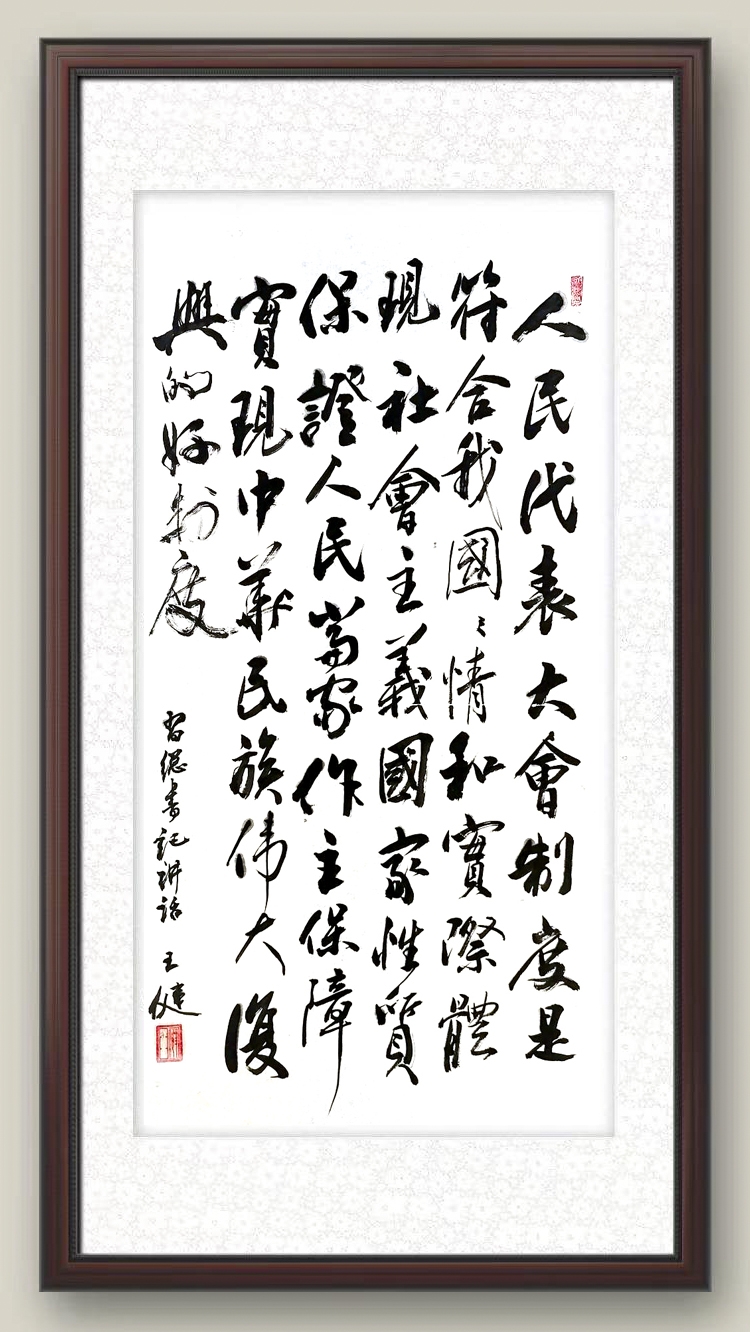 人民代表大會制度是
符合我國〻情和實際體
現社會主義國家性質
保證人民當家作主保障
實現中華民族伟大復
興的好制度
習總書記講話 王健